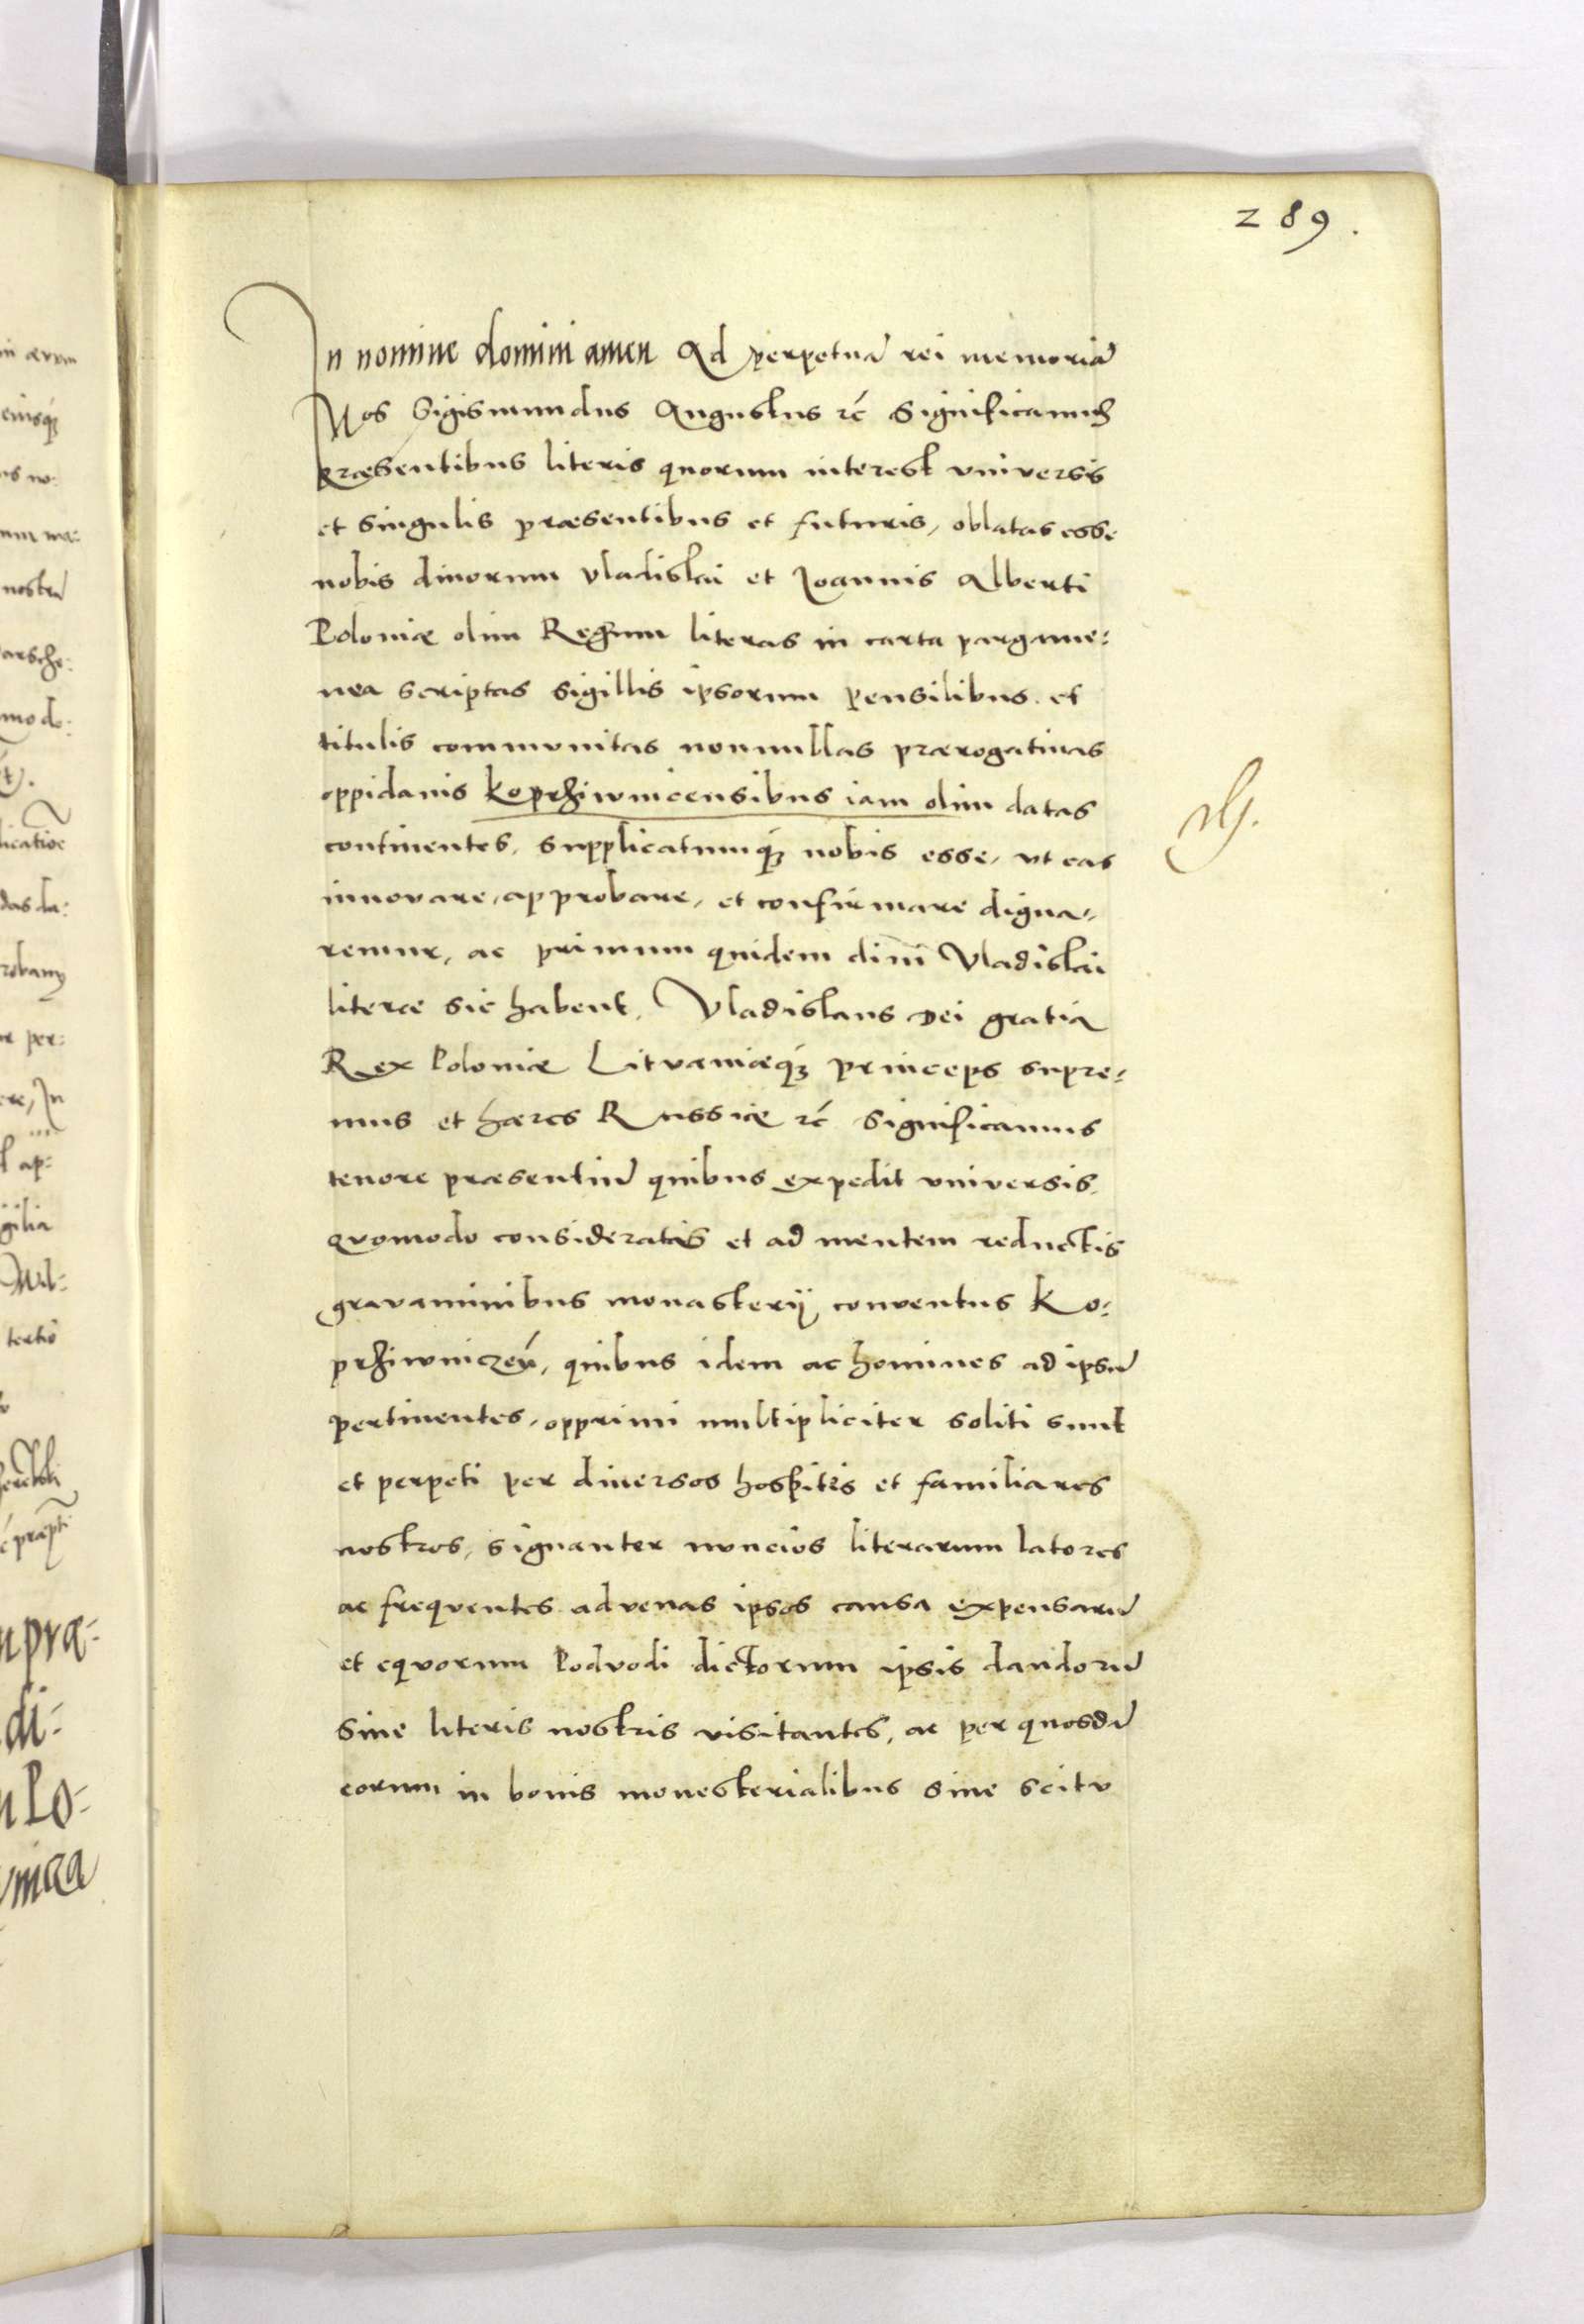 289.
In nomine domini amen Ad perpetuā rei memoriā
Nos Sigismundus Augustus rc̄ Significamus
præsentibus literis quorum interest vniversis
et singulis præsentibus et futuris, oblatas esse
nobis divorum Vladislai et Joannis Alberti
Poloniæ olim Regum literas in carta pargame:
nea scriptas sigillis ipsorum pensilibus. et
titulis communitas nonnullas prærogativas
oppidanis Koprziwnicensibus iam olim datas
continentes, supplicatumq́; nobis esse, vt eas
innovare, approbare, et confirmare digna:
remur, ac primum quidem divi Vladislai
literæ sic habent, Vladislaus Dei gratia
Rex Poloniæ Litvaniæq́; princeps supre:
mus et hæres Russiæ rc̄ Significamus
tenore præsentiū quibus expedit vniversis,
quomodo consideratis et ad mentem reductis
gravaminibus monasterij conventus Ko:
prziwniczeń, quibus idem ac homines ad ipsū
pertinentes, opprimi multipliciter soliti sunt
et perpeti per diversos hospites et familiares
nostros, signanter nuncios literarum latores
ac frequentes advenas ipsos causa expensarū
et equorum Podvodi dictorum ipsis dandorū
sine literis nostris visitantes, ac per quosdā
eorum in bonis monesterialibus sine scitu